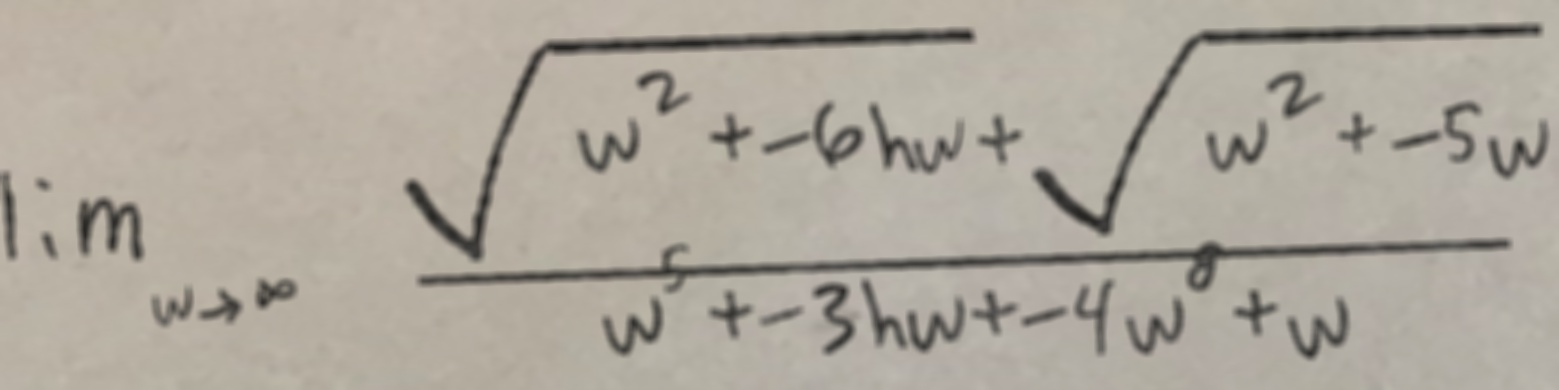 \lim_{w \to \infty} \frac{\sqrt{w^2 + -6hw} + \sqrt{w^2 + -5w}}{w^5 + -3hw + -4w^8 + w}